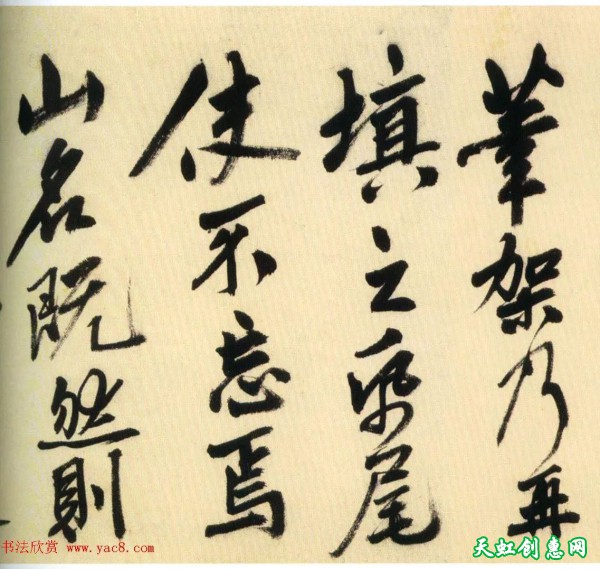 筆架乃再
填之帋尾
使不忘焉
山名既然則
书法欣赏 www.yac8.com
天虹创惠网